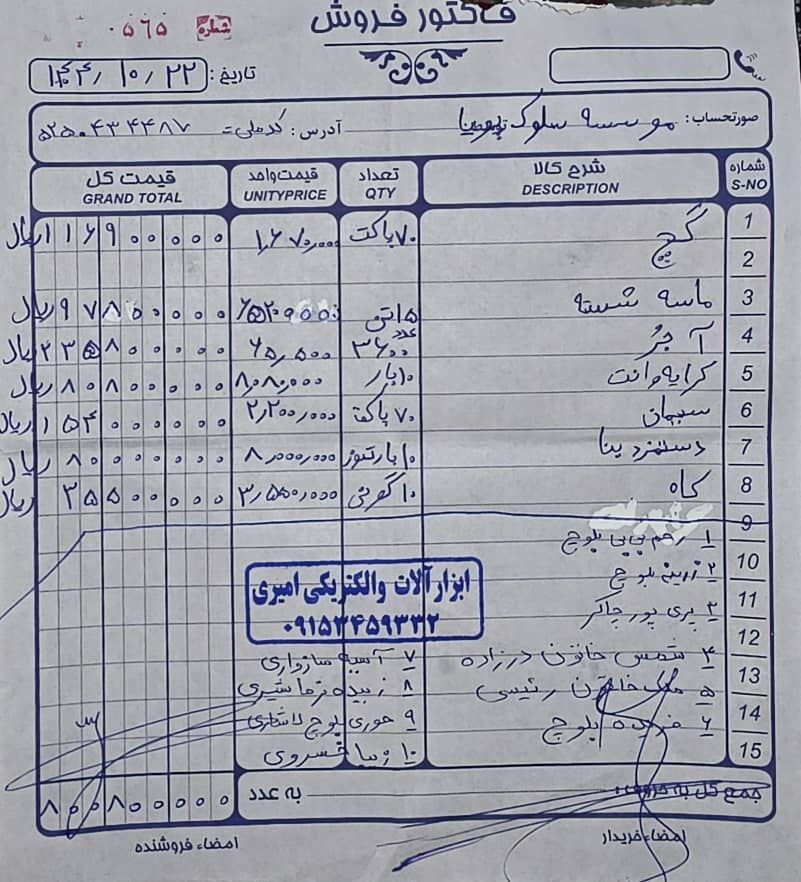 فاکتور فروش
شماره ۰۵۶۵
تاریخ: ۱۴۰۴/۱۰/۲۲
صورتحساب: موسسه سلوک
آدرس: کد ملی ۵۲۵۰۴۳۴۴۸۷
شماره S-NO شرح کالا DESCRIPTION تعداد QTY قیمت واحد UNITYPRICE قیمت کل GRAND TOTAL
1 گچ ۷۰ پاکت ۱,۶۷۰,۰۰۰ ۱۱۶۹۰۰۰۰۰ ریال
2
3 ماسه شسته ۱۵ تن ۹۷۸۰۰۰۰۰ ریال
4 آجر ۳۶۰۰ عدد ۶۵,۵۰۰ ۲۳۵۸۰۰۰۰۰ ریال
5 کرایه وانت ۱۰ بار ۸,۰۸۰,۰۰۰ ۸۰۸۰۰۰۰۰ ریال
6 سیمان ۷۰ پاکت ۲,۲۰۰,۰۰۰ ۱۵۴۰۰۰۰۰۰ ریال
7 دستمزد بنا ۱۰ ۸,۰۰۰,۰۰۰ ۸۰۰۰۰۰۰۰ ریال
8 کاه ۱۰ گونی ۳,۵۵۰۰,۰۰۰ ۳۵۵۰۰۰۰۰ ریال
9
۱ رحم بی بی بلوچ
10
۲ زرینه بلوچ
11
۳ پری پور چاکر
12
۴ شمس خاتون درزاده ۷ آسیه سازواری
13
۵ ملک خاتون رئیسی ۸ زبیده ترماشیری
14
۶ فریده بلوچ ۹ حوری بلوچ لاشاری
15
۱۰ زیبا خسروی
ابزار آلات والکتریکی امیری
۰۹۱۵۳۴۵۹۳۳۲
جمع کل به حروف: به عدد ۸۰۰۸۰۰۰۰۰
امضاء خریدار امضاء فروشنده